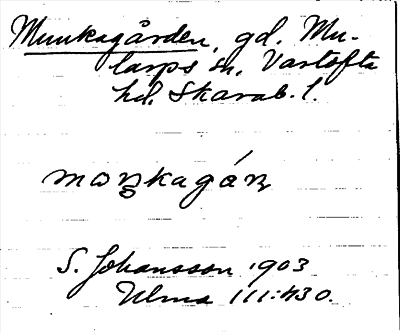 Munkagården, gd. Mu-
larps sn. Vartofta
hd. Skarab. l.
maŋkagá
S. Johansson 1903
Ulma 111:430.